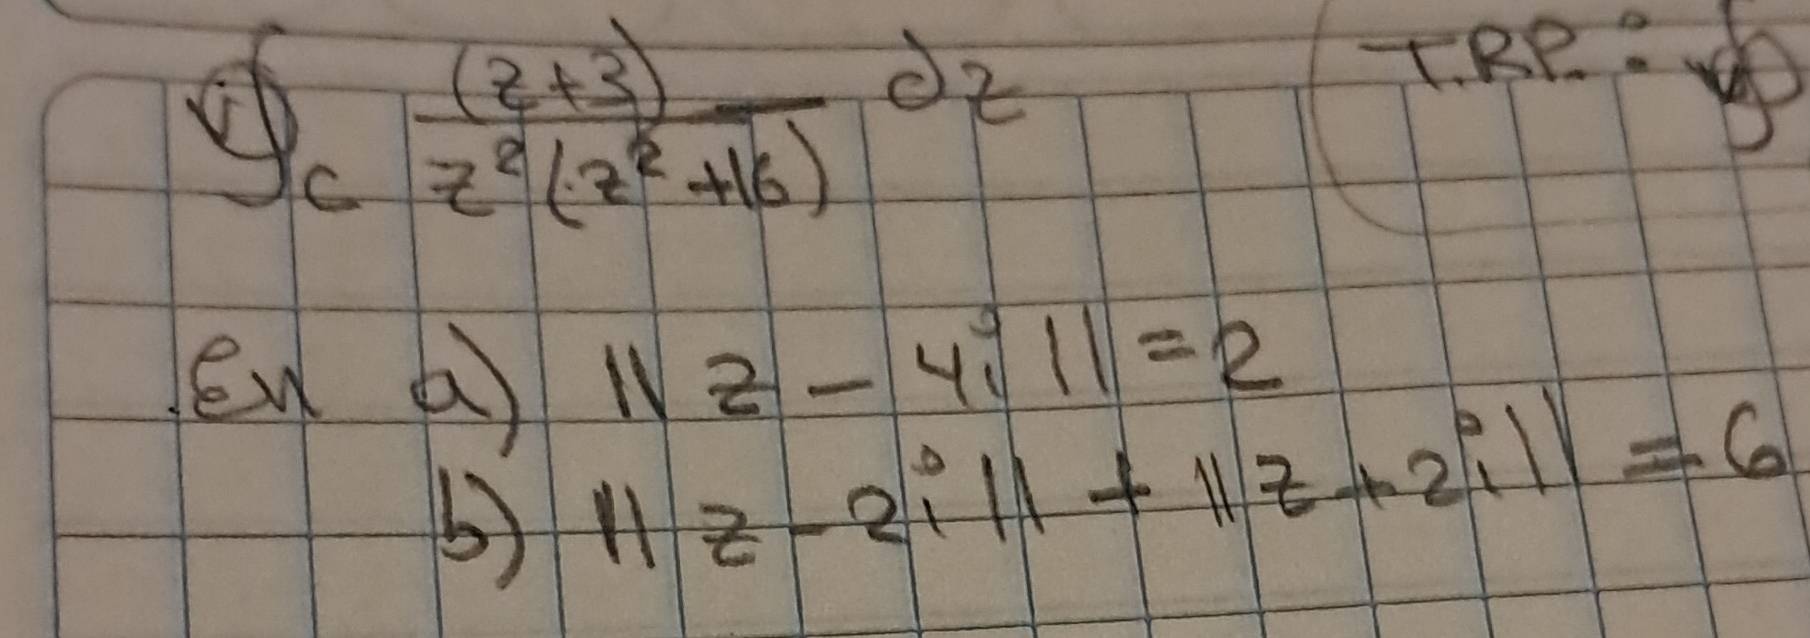 ∮c (z+3) / z²(z²+16) dz
T.R.P. : ∮
En a) || z - 4i || = 2
b) || z - 2i || + || z + 2i || = 6